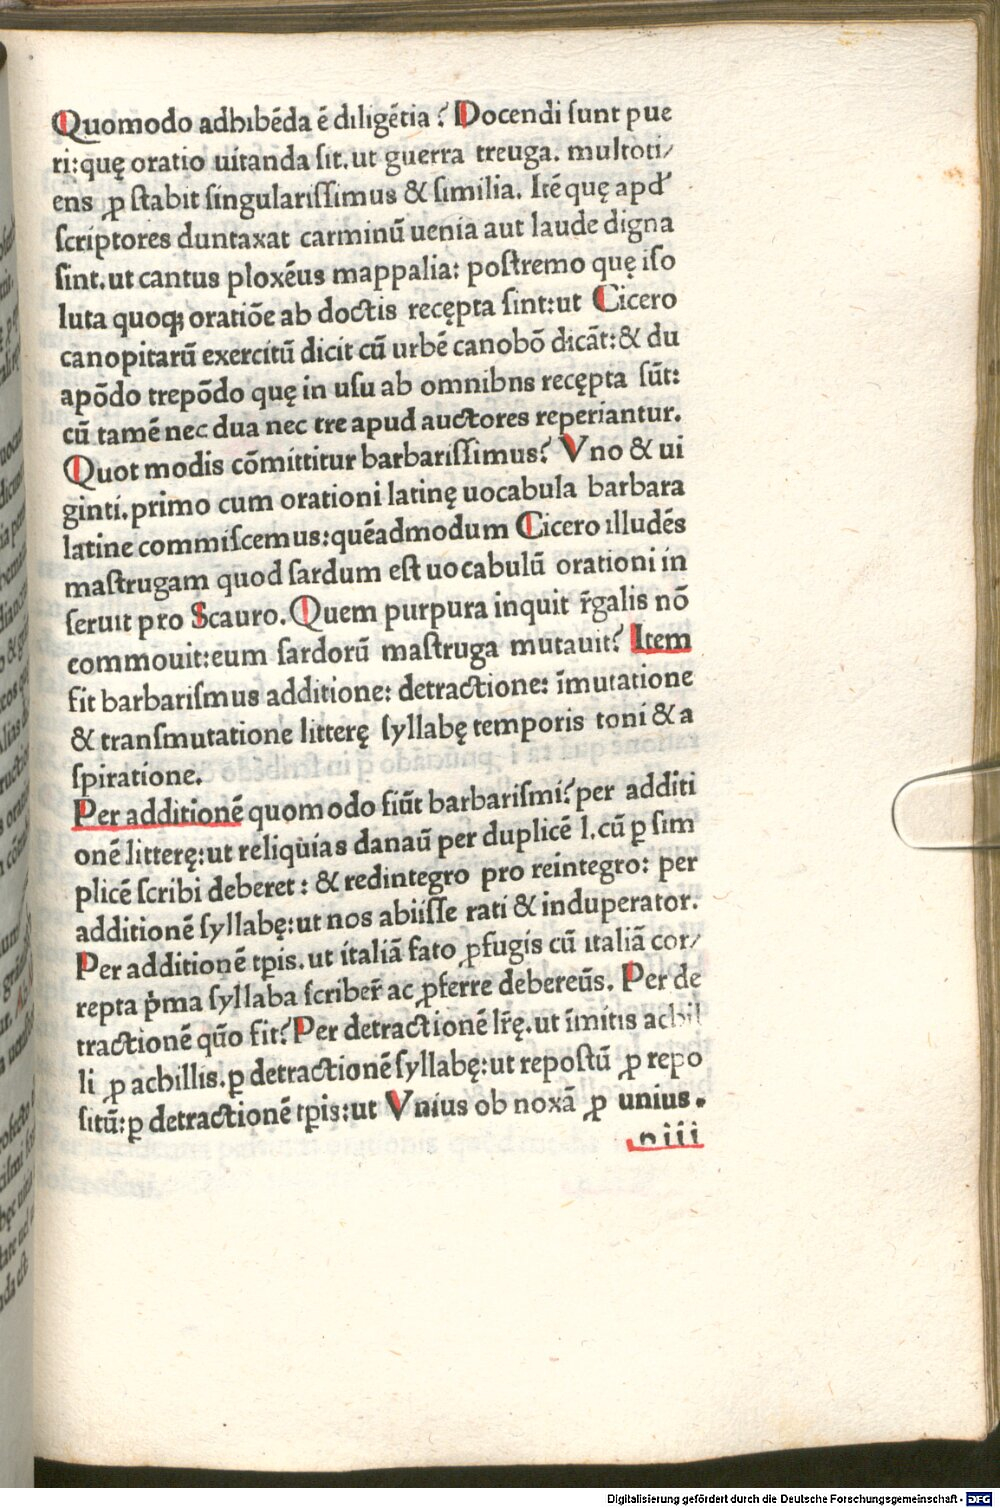 Quomodo adhibēda ē diligētia? Docendi ſunt pue
ri: quę oratio uitanda ſit. ut guerra treuga. multoti/
ens ꝓ ſtabit ſingulariſſimus & ſimilia. Itē quę apd'
ſcriptores duntaxat carminū uenia aut laude digna
ſint. ut cantus ploxēus mappalia: poſtremo quę iſo
luta quoqꝫ oratiōe ab doctis recępta ſint: ut Cicero
canopitarū exercitū dicit cū urbē canobō dicāt: & du
apōdo trepōdo quę in uſu ab omnibns recępta ſūt:
cū tamē nec dua nec tre apud auctores reperiantur.
Quot modis cōmittitur barbariſſimus? Vno & ui
ginti. primo cum orationi latinę uocabula barbara
latine commiſcemus: quēadmodum Cicero illudēs
maſtrugam quod ſardum eſt uocabulū orationi in
ſeruit pro Scauro. Quem purpura inquit r̄galis nō
commouit: eum ſardorū maſtruga mutauit? Item
fit barbariſmus additione: detractione: īmutatione
& tranſmutatione litterę ſyllabę temporis toni & a
ſpiratione.
Per additionē quomodo fiūt barbariſmi? per additi
onē litterę: ut reliquias danaū per duplicē l. cū ꝑ ſim
plicē ſcribi deberet: & redintegro pro reintegro: per
additionē ſyllabę: ut nos abiiſſe rati & induperator.
Per additionē tꝑis. ut italiā fato ꝓfugis cū italiā cor/
repta ṗma ſyllaba ſcriber̄ ac ꝓferre debereūs. Per de
tractionē quō fit? Per detractionē lr̄ę. ut īmitis achil
li ꝓ achillis. ꝑ detractionē ſyllabę: ut repoſtū ꝓ repo
ſitū: ꝑ detractionē tꝑis: ut Vnius ob noxā ꝓ unius.
n iii
Digitalisierung gefördert durch die Deutsche Forschungsgemeinschaft - DFG